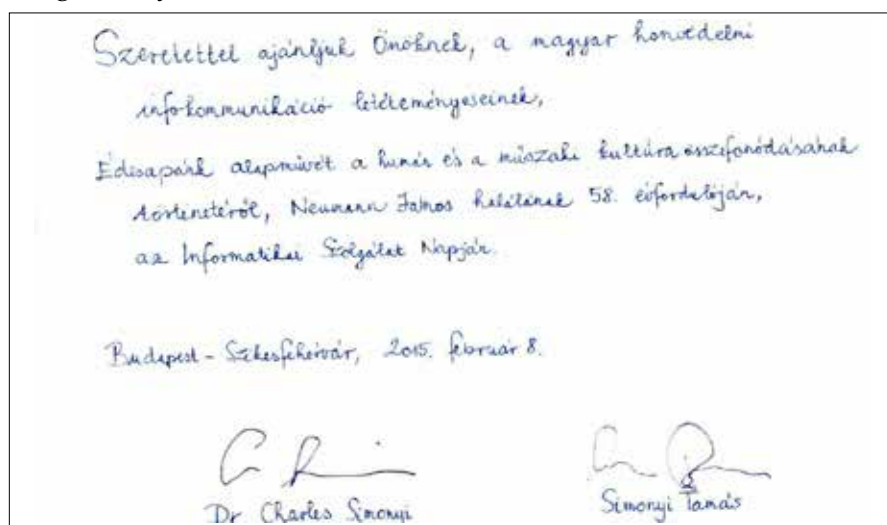 Szeretettel ajánljuk Önöknek, a magyar honvédelmi
infokommunikáció letéteményeseinek,
Édesapánk alapművét a humán és a műszaki kultúra összefonódásának
történetéről, Neumann János halálának 58. évfordulóján,
az Informatikai Szolgálat Napján.
Budapest - Székesfehérvár, 2015. február 8.
Dr Charles Simonyi
Simonyi Tamás